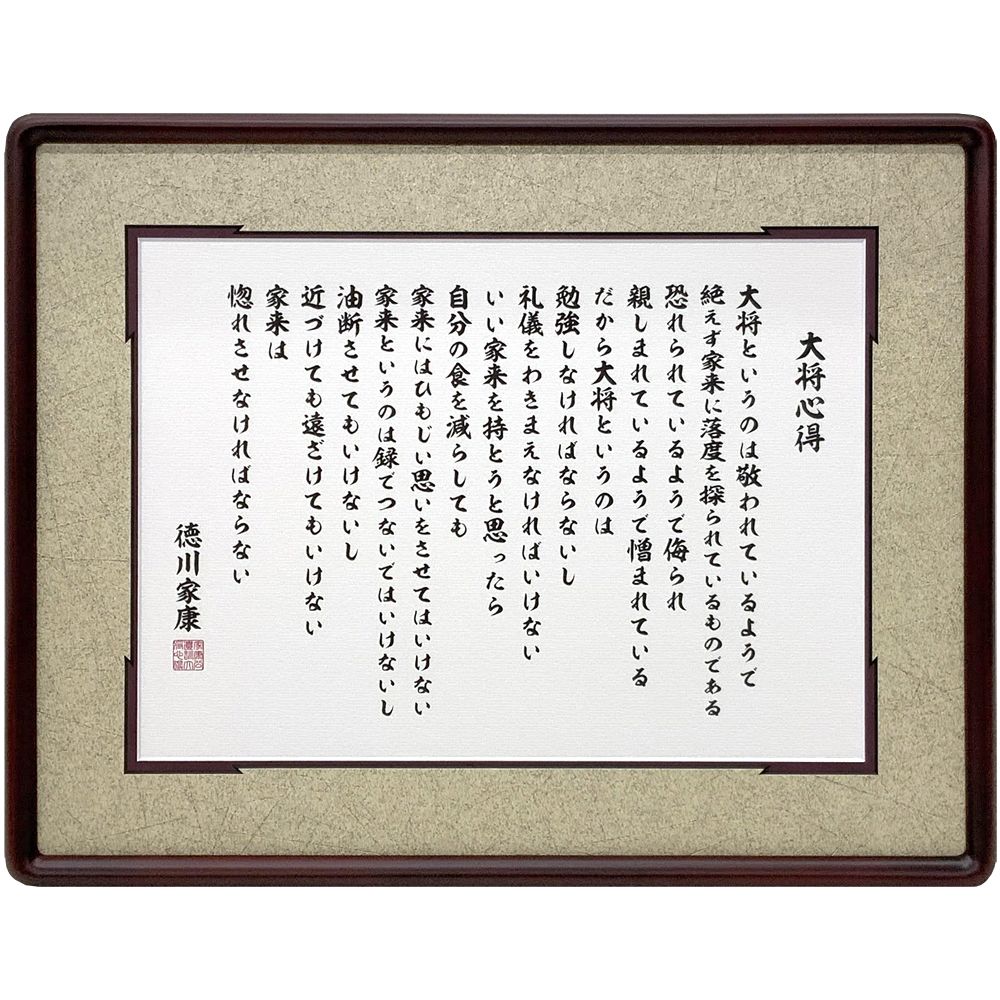 大将心得
大将というのは敬われているようで
絶えず家来に落度を探られているものである
恐れられているようで侮られ
親しまれているようで憎まれている
だから大将というのは
勉強しなければならないし
礼儀をわきまえなければいけない
いい家来を持とうと思ったら
自分の食を減らしても
家来にはひもじい思いをさせてはいけない
家来というのは録でつないではいけないし
油断させてもいけないし
近づけても遠ざけてもいけない
家来は
惚れさせなければならない
徳川家康